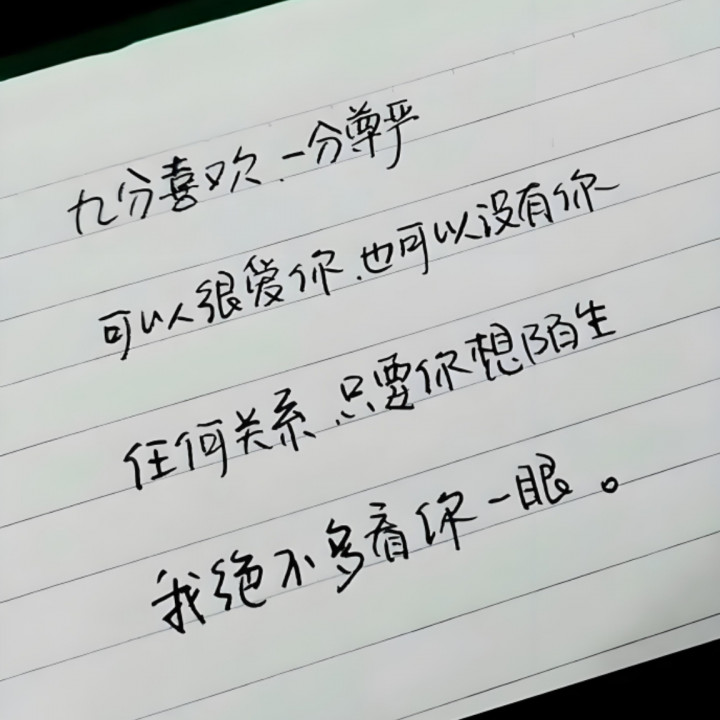 九分喜欢、一分尊严
可以很爱你、也可以没有你
任何关系、只要你想陌生
我绝不多看你一眼。